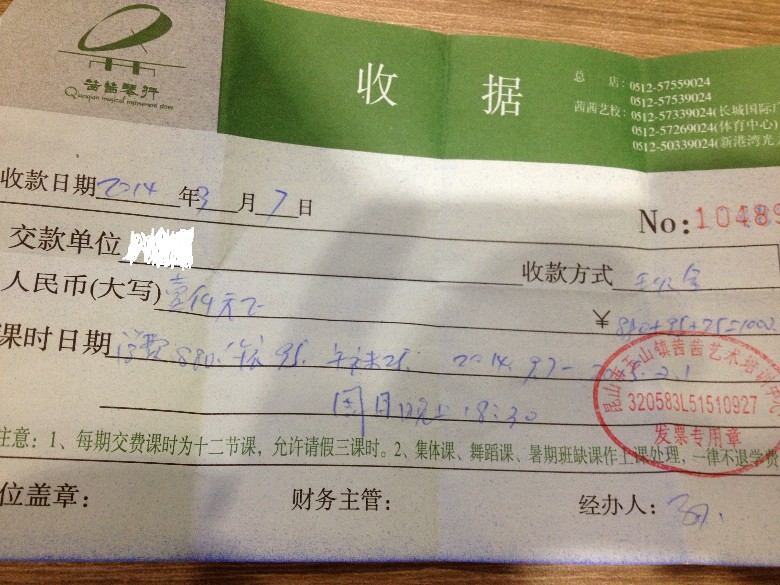 茜茜琴行
收 据
总 店:0512-57559024
0512-57539024
茜茜艺校:0512-57339024(长城国际
0512-57269024(体育中心)
0512-50339024(新港湾光
收款日期 2014 年 3 月 7 日
No:10489
交款单位
收款方式
人民币(大写) 壹仟元正
¥ 880+95+25=1000
课时日期 学费880. 95. 25. 2014.
周日晚上18:30
昆山市玉山镇茜茜艺术培训中心
320583L51510927
发票专用章
注意:1、每期交费课时为十二节课,允许请假三课时。2、集体课、舞蹈课、暑期班缺课作上课处理,一律不退学费
位盖章:
财务主管:
经办人: